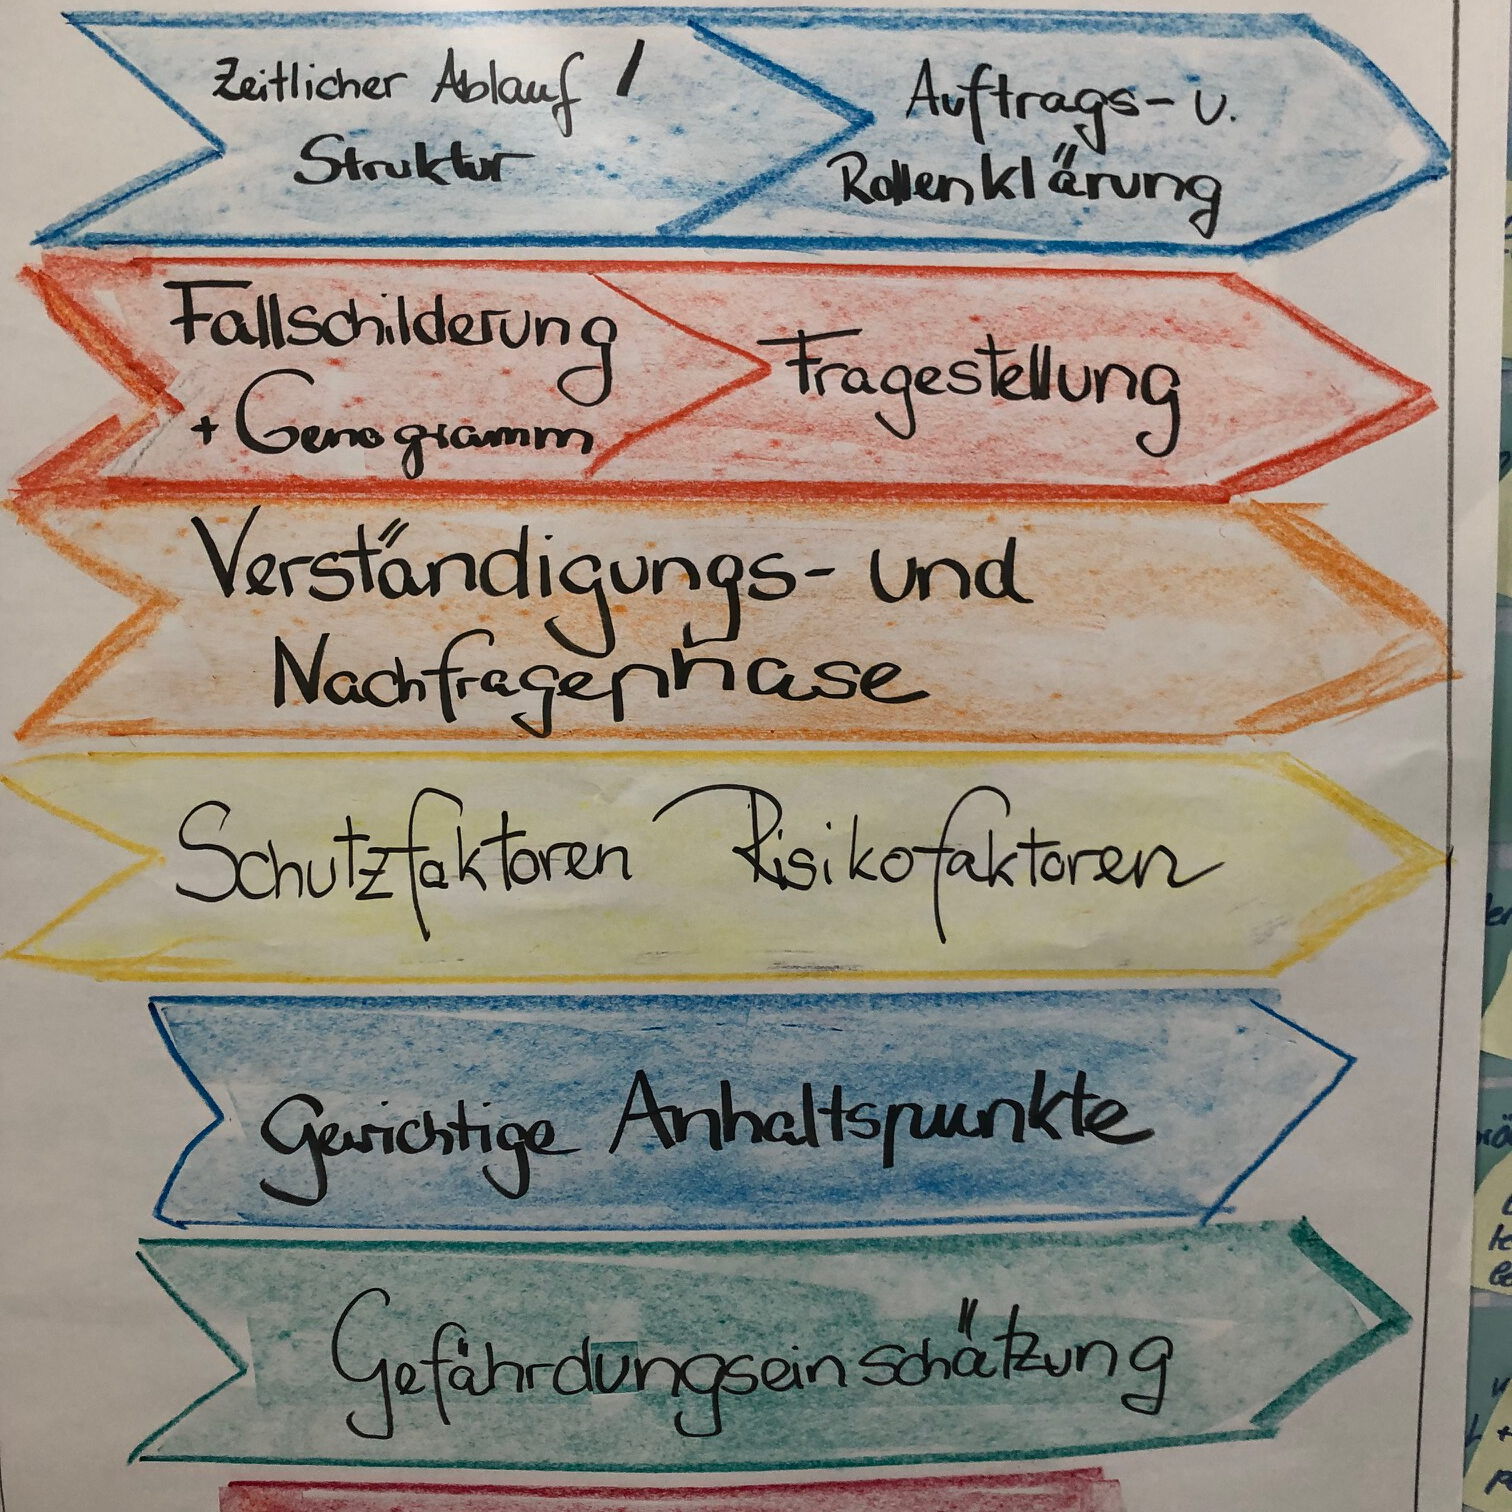 Zeitlicher Ablauf /
Struktur
Auftrags- u.
Rollenklärung
Fallschilderung
+ Genogramm
Fragestellung
Verständigungs- und
Nachfragephase
Schutzfaktoren Risikofaktoren
Gewichtige Anhaltspunkte
Gefährdungseinschätzung